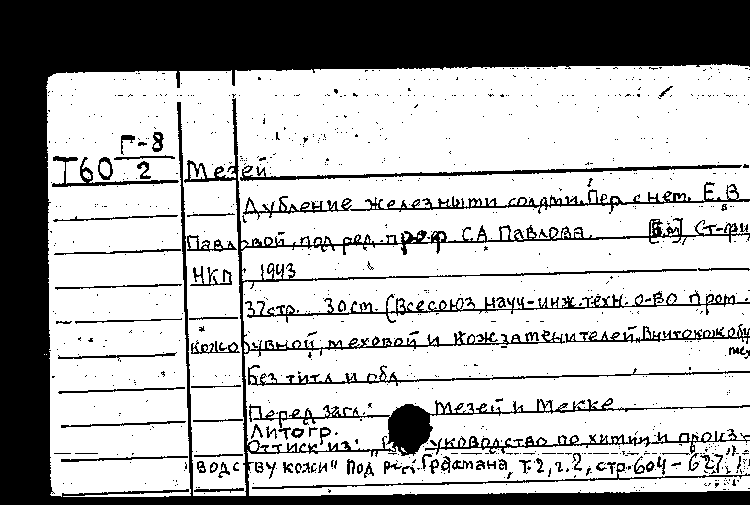 Г-8
Т60 2 Мезей
Дубление железными солями. Пер с нем. Е.В
Павловой, под ред. проф С.А. Павлова. [Б.м], Ст-
НКП, 1943
37стр. 30 см. (Всесоюз науч-инж.техн. о-во пром.
кожобувной, меховой и кожзаменителей.
Без титл и обл
Перед загл.: Мезей и Мекке
Литогр.
Оттиск из: уководство по химии и произ-
водству кожи" под Т.2, ч.2, стр. 604-627"